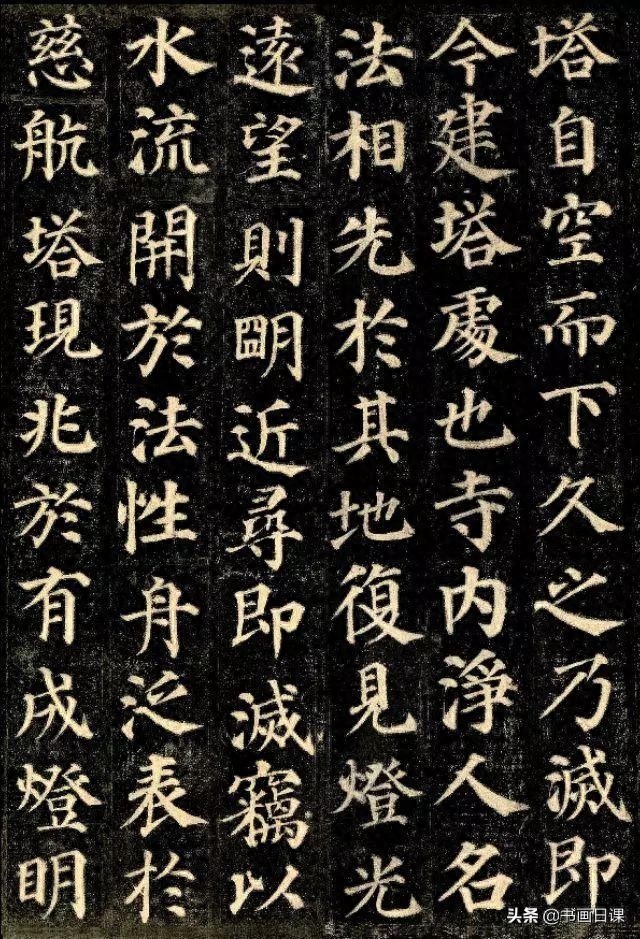 塔自空而下久之乃滅即
今建塔處也寺内淨人名
法相先於其地復見燈光
遠望則朙近尋即滅竊以
水流開於法性舟泛表於
慈航塔現兆於有成燈明
头条 @书画日课